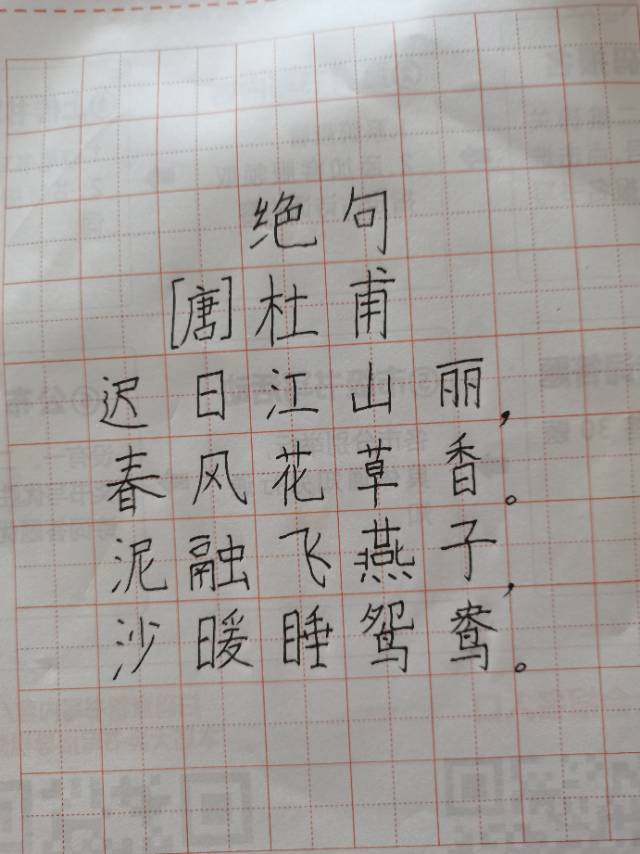 绝句
[唐]杜甫
迟日江山丽，
春风花草香。
泥融飞燕子，
沙暖睡鸳鸯。